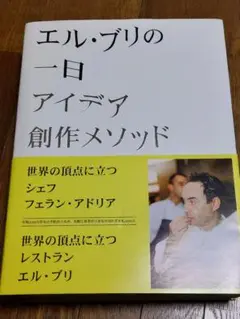 エル・ブリの
一日
アイデア
創作メソッド
世界の頂点に立つ
シェフ
フェラン・アドリア
世界の頂点に立つ
レストラン
エル・ブリ